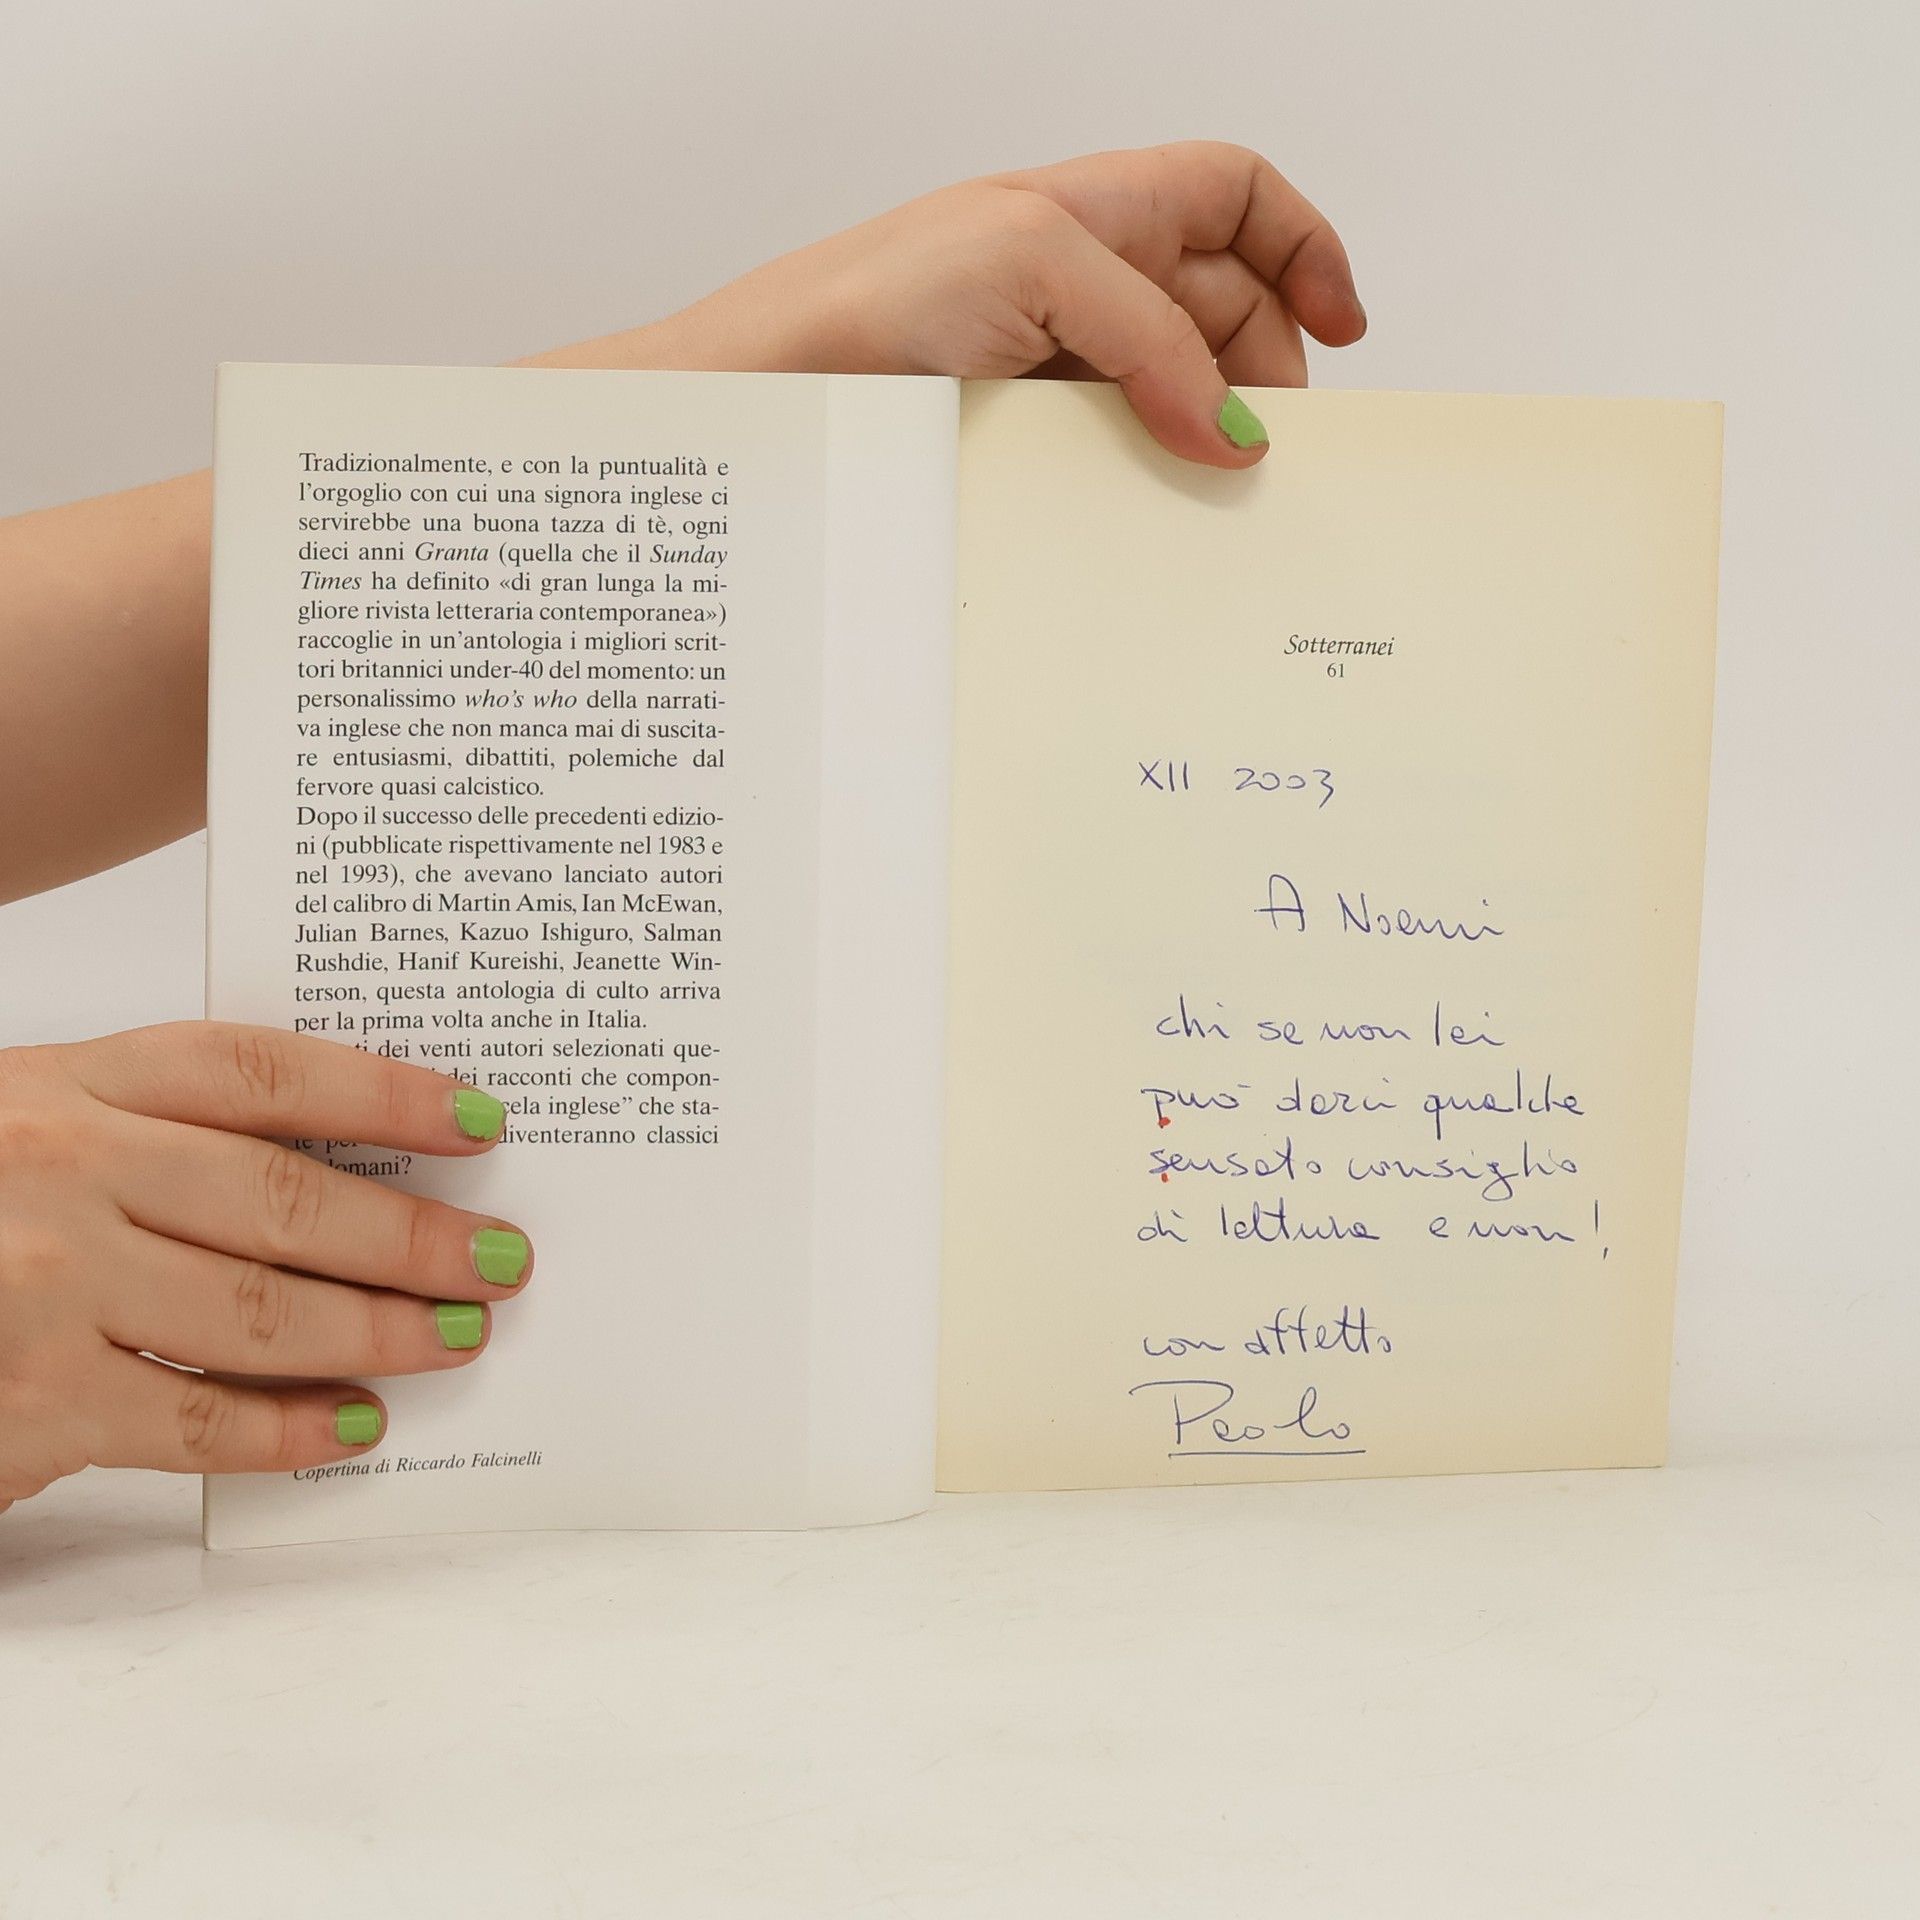 Tradizionalmente, e con la puntualità e
l'orgoglio con cui una signora inglese ci
servirebbe una buona tazza di tè, ogni
dieci anni Granta (quella che il Sunday
Times ha definito «di gran lunga la mi-
gliore rivista letteraria contemporanea»)
raccoglie in un'antologia i migliori scrit-
tori britannici under-40 del momento: un
personalissimo who's who della narrati-
va inglese che non manca mai di suscita-
re entusiasmi, dibattiti, polemiche dal
fervore quasi calcistico.
Dopo il successo delle precedenti edizio-
ni (pubblicate rispettivamente nel 1983 e
nel 1993), che avevano lanciato autori
del calibro di Martin Amis, Ian McEwan,
Julian Barnes, Kazuo Ishiguro, Salman
Rushdie, Hanif Kureishi, Jeanette Win-
terson, questa antologia di culto arriva
per la prima volta anche in Italia.
dei venti autori selezionati que-
dei racconti che compon-
inglese” che sta-
diventeranno classici
domani?
Copertina di Riccardo Falcinelli
Sotterranei
61
XII 2003
A Noemi
chi se non lei
può darci qualche
sensato consiglio
di lettura e non!
con affetto
Paolo